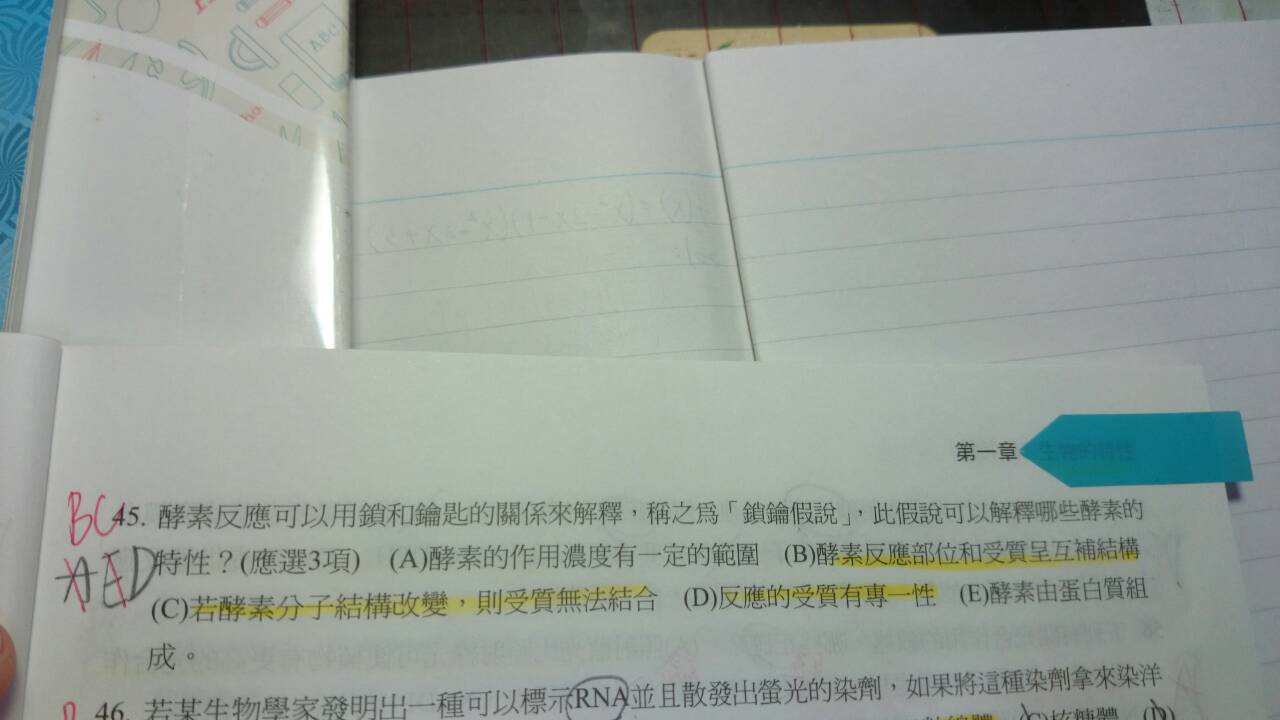 ABC
第一章 生物的特性
BC 45. 酵素反應可以用鎖和鑰匙的關係來解釋，稱之為「鎖鑰假說」，此假說可以解釋哪些酵素的
AED 特性？(應選3項) (A)酵素的作用濃度有一定的範圍 (B)酵素反應部位和受質呈互補結構
(C)若酵素分子結構改變，則受質無法結合 (D)反應的受質有專一性 (E)酵素由蛋白質組
成。
46. 若某生物學家發明出一種可以標示RNA並且散發出螢光的染劑，如果將這種染劑拿來染洋
(C)核糖體 (D)